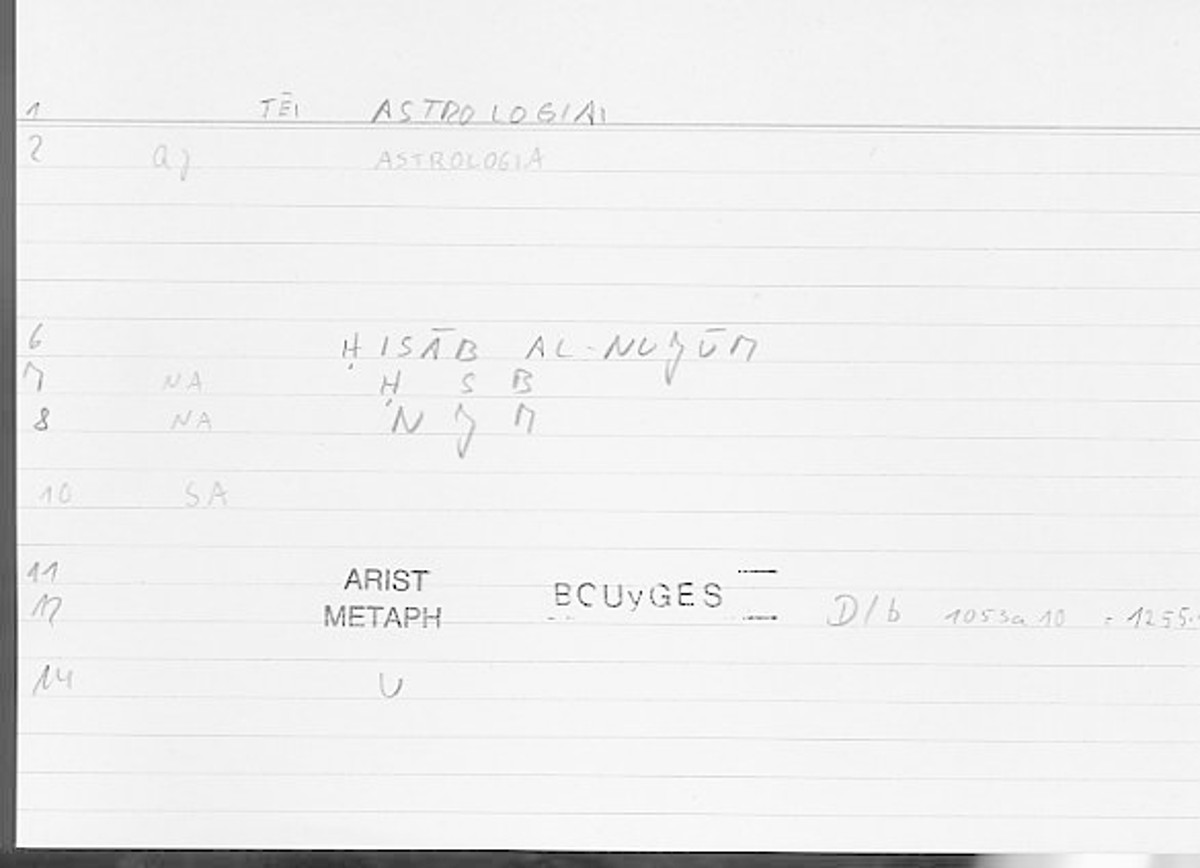 1 TĒI ASTROLOGIAI
2 aj ASTROLOGIA
6 ḤISĀB AL-NUJŪM
7 NA Ḥ S B
8 NA N J M
10 SA
11 ARIST
12 METAPH BOUyGES D/b 1053a 10 = 1255.
14 U